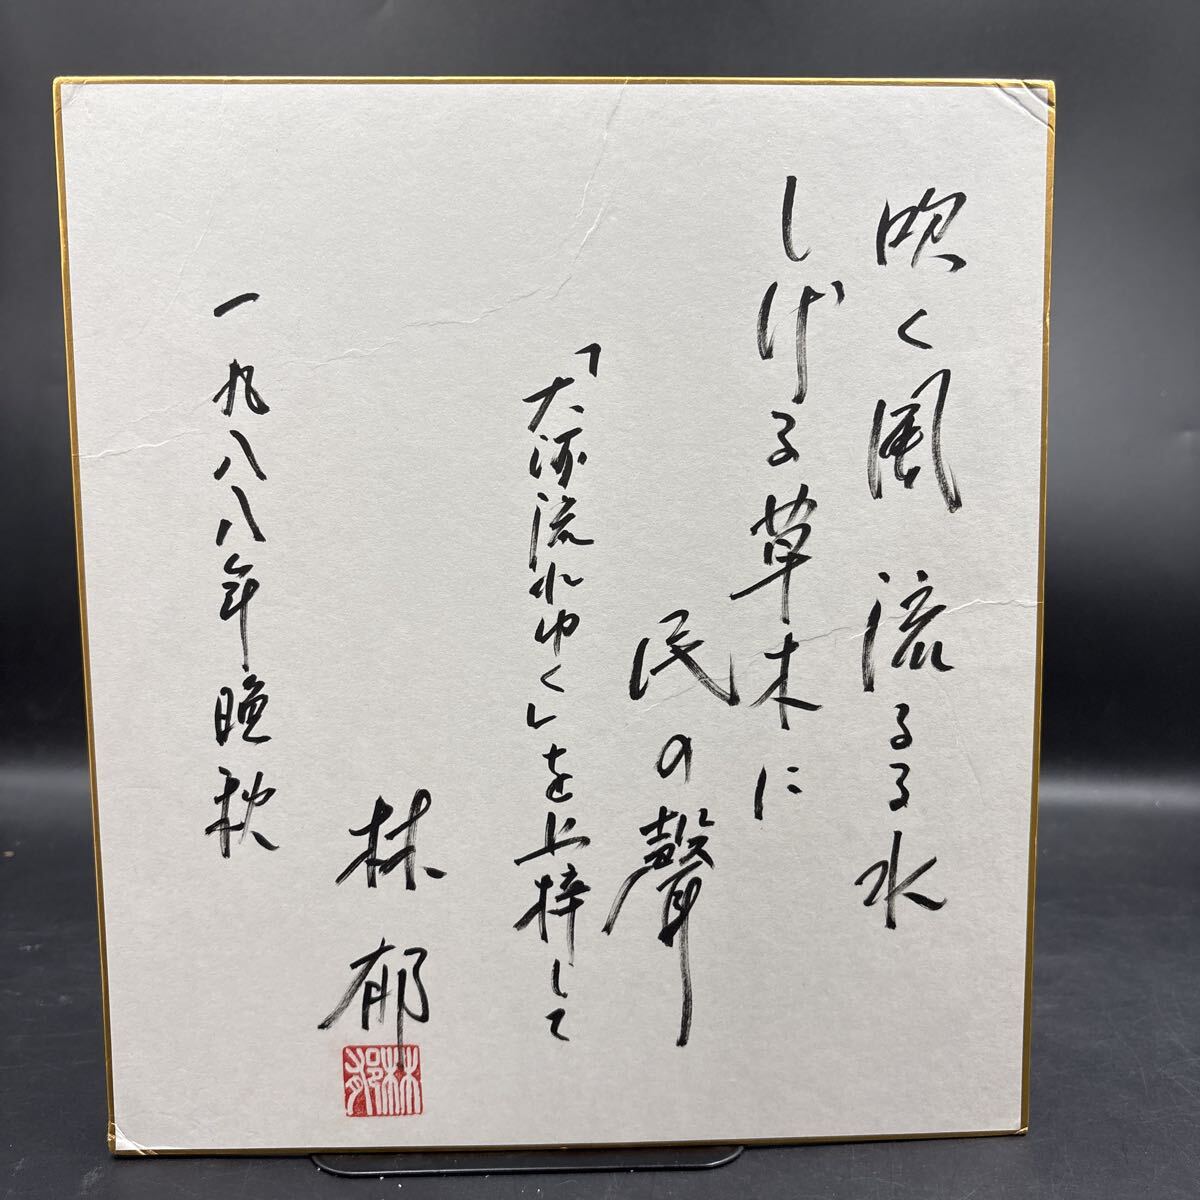 吹く風 流るる水
しげる草木に
民の聲
「大河流れゆく」を上梓して
林 郁
林郁
一九八八年晩秋